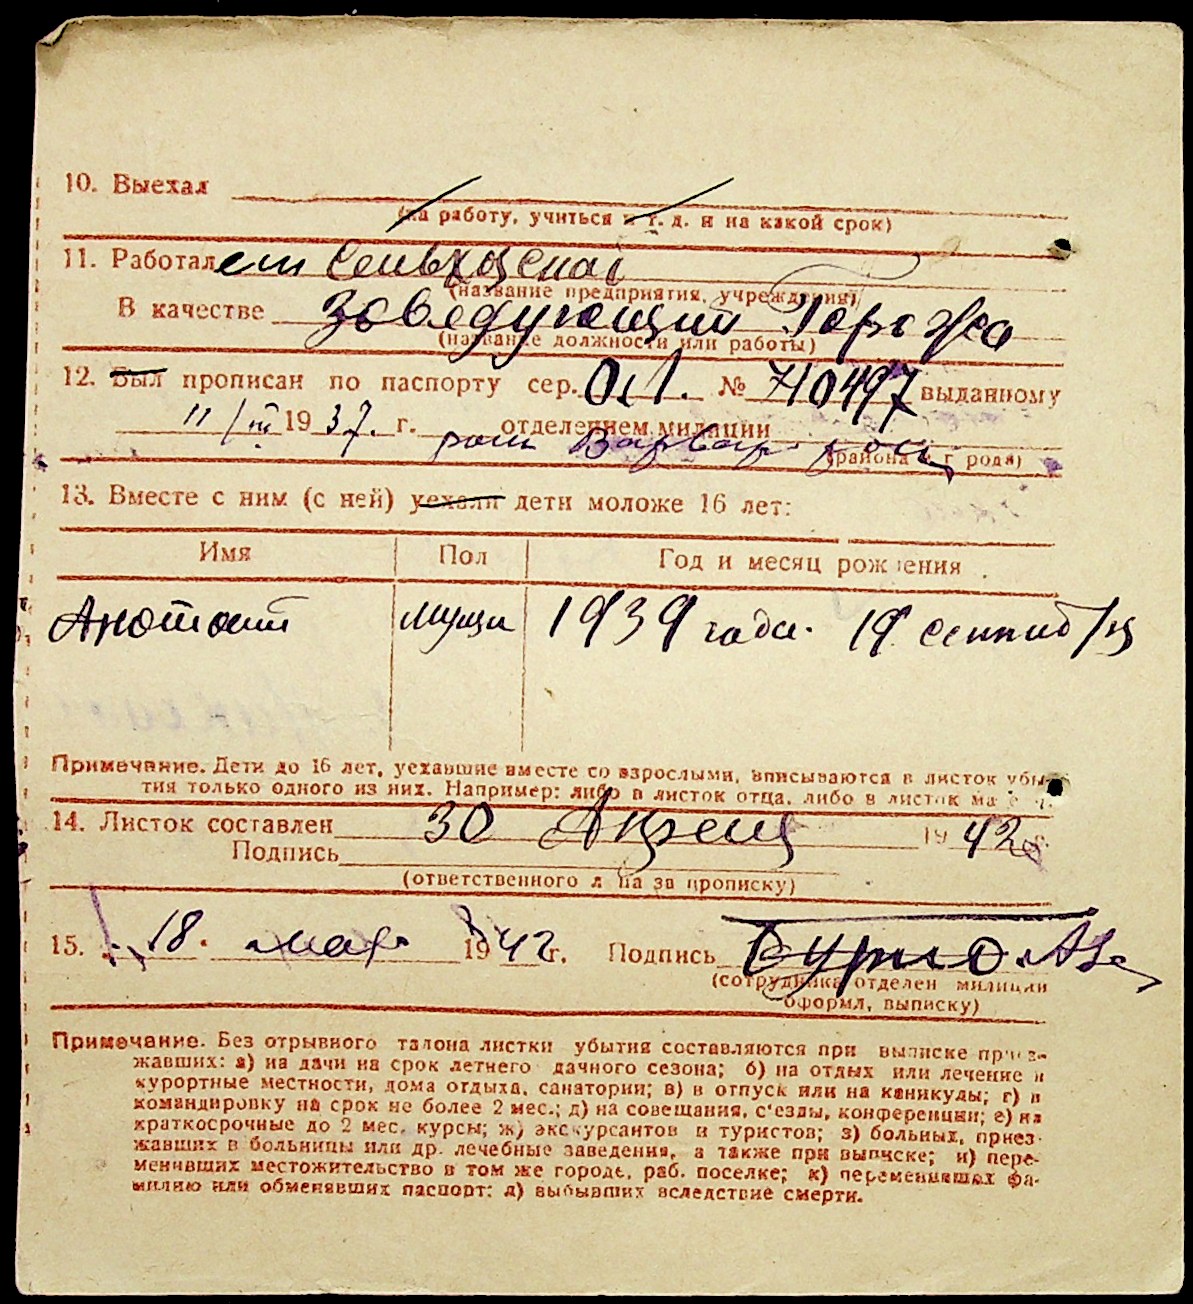 10. Выехал
(на работу, учиться и т. д. и на какой срок)
11. Работал
(название предприятия, учреждения)
В качестве Заведующий Гаража
(название должности или работы)
12. Был прописан по паспорту сер. № 710497 выданному
11/III 1937. г. отделением милиции
(района и г. рода)
13. Вместе с ним (с ней) уехали дети моложе 16 лет:
Имя Пол Год и месяц рождения
мущи 1939 года. 19
Примечание. Дети до 16 лет, уехавшие вместе со взрослыми, вписываются в листок убы-
тия только одного из них. Например: либо в листок отца, либо в листок ма
14. Листок составлен 30 Апреля 1942 г.
Подпись
(ответственного лица за прописку)
15. 18. мая 1942 г. Подпись
(сотрудника отделен милиции
оформл, выписку)
Примечание. Без отрывного талона листки убытия составляются при выписке приез-
жавших: а) на дачи на срок летнего дачного сезона; б) на отдых или лечение в
курортные местности, дома отдыха, санатории; в) в отпуск или на каникулы; г) в
командировку на срок не более 2 мес.; д) на совещания, с'езды, конференции; е) на
краткосрочные до 2 мес. курсы; ж) экскурсантов и туристов; з) больных, приез-
жавших в больницы или др. лечебные заведения, а также при выписке; и) пере-
менивших местожительство в том же городе, раб. поселке; к) переменивших фа-
милию или обменявших паспорт; л) выбывших вследствие смерти.